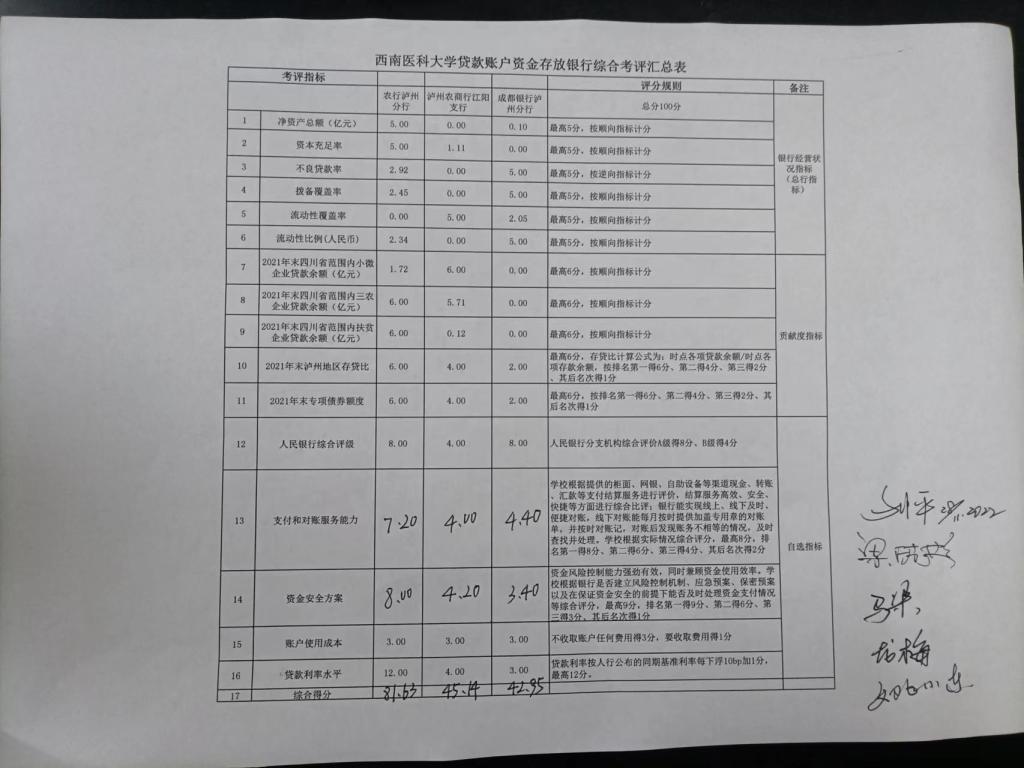 西南医科大学贷款账户资金存放银行综合考评汇总表
考评指标 评分规则 备注
农行泸州分行 泸州农商行江阳支行 成都银行泸州分行 总分100分
1 净资产总额（亿元） 5.00 0.00 0.10 最高5分，按顺向指标计分
2 资本充足率 5.00 1.11 0.00 最高5分，按顺向指标计分
3 不良贷款率 2.92 0.00 5.00 最高5分，按逆向指标计分
银行经营状况指标（总行指标）
4 拨备覆盖率 2.45 0.00 5.00 最高5分，按顺向指标计分
5 流动性覆盖率 0.00 5.00 2.05 最高5分，按顺向指标计分
6 流动性比例(人民币) 2.34 0.00 5.00 最高5分，按顺向指标计分
7 2021年末四川省范围内小微企业贷款余额（亿元） 1.72 6.00 0.00 最高6分，按顺向指标计分
8 2021年末四川省范围内三农企业贷款余额（亿元） 6.00 5.71 0.00 最高6分，按顺向指标计分
9 2021年末四川省范围内扶贫企业贷款余额（亿元） 6.00 0.12 0.00 最高6分，按顺向指标计分
贡献度指标
10 2021年末泸州地区存贷比 6.00 4.00 2.00 最高6分，存贷比计算公式为：时点各项贷款余额/时点各项存款余额，按排名第一得6分、第二得4分、第三得2分、其后名次得1分
11 2021年末专项债券额度 6.00 4.00 2.00 最高6分，按排名第一得6分、第二得4分、第三得2分、其后名次得1分
12 人民银行综合评级 8.00 4.00 8.00 人民银行分支机构综合评价A级得8分、B级得4分
13 支付和对账服务能力 7.20 4.00 4.40 学校根据提供的柜面、网银、自助设备等渠道现金、转账、汇款等支付结算服务进行评价，结算服务高效、安全、快捷等方面进行综合比评；银行能实现线上、线下及时、便捷对账，线下对账能每月按时提供加盖专用章的对账单，并按时对账记，对账后发现账务不相等的情况，及时查找并处理。学校根据实际情况综合评分，最高8分，排名第一得8分、第二得6分、第三得4分、其后名次得2分
自选指标
14 资金安全方案 8.00 4.20 3.40 资金风险控制能力强劲有效，同时兼顾资金使用效率。学校根据银行是否建立风险控制机制、应急预案、保密预案以及在保证资金安全的前提下能否及时处理资金支付情况等综合评分，最高9分，排名第一得9分、第二得6分、第三得3分、其后名次得1分
15 账户使用成本 3.00 3.00 3.00 不收取账户任何费用得3分，要收取费用得1分
16 贷款利率水平 12.00 4.00 3.00 贷款利率按人行公布的同期基准利率每下浮10bp加1分，最高12分。
17 综合得分 81.63 45.14 42.95